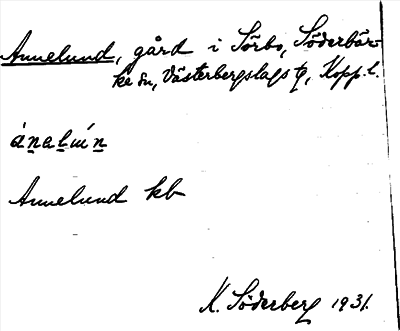 Annelund, gård i Sörbo, Söderbär-
ke sn, Västerbergslags tg, Kopp. l.
ánalun
Annelund kb
K. Söderberg 1931.